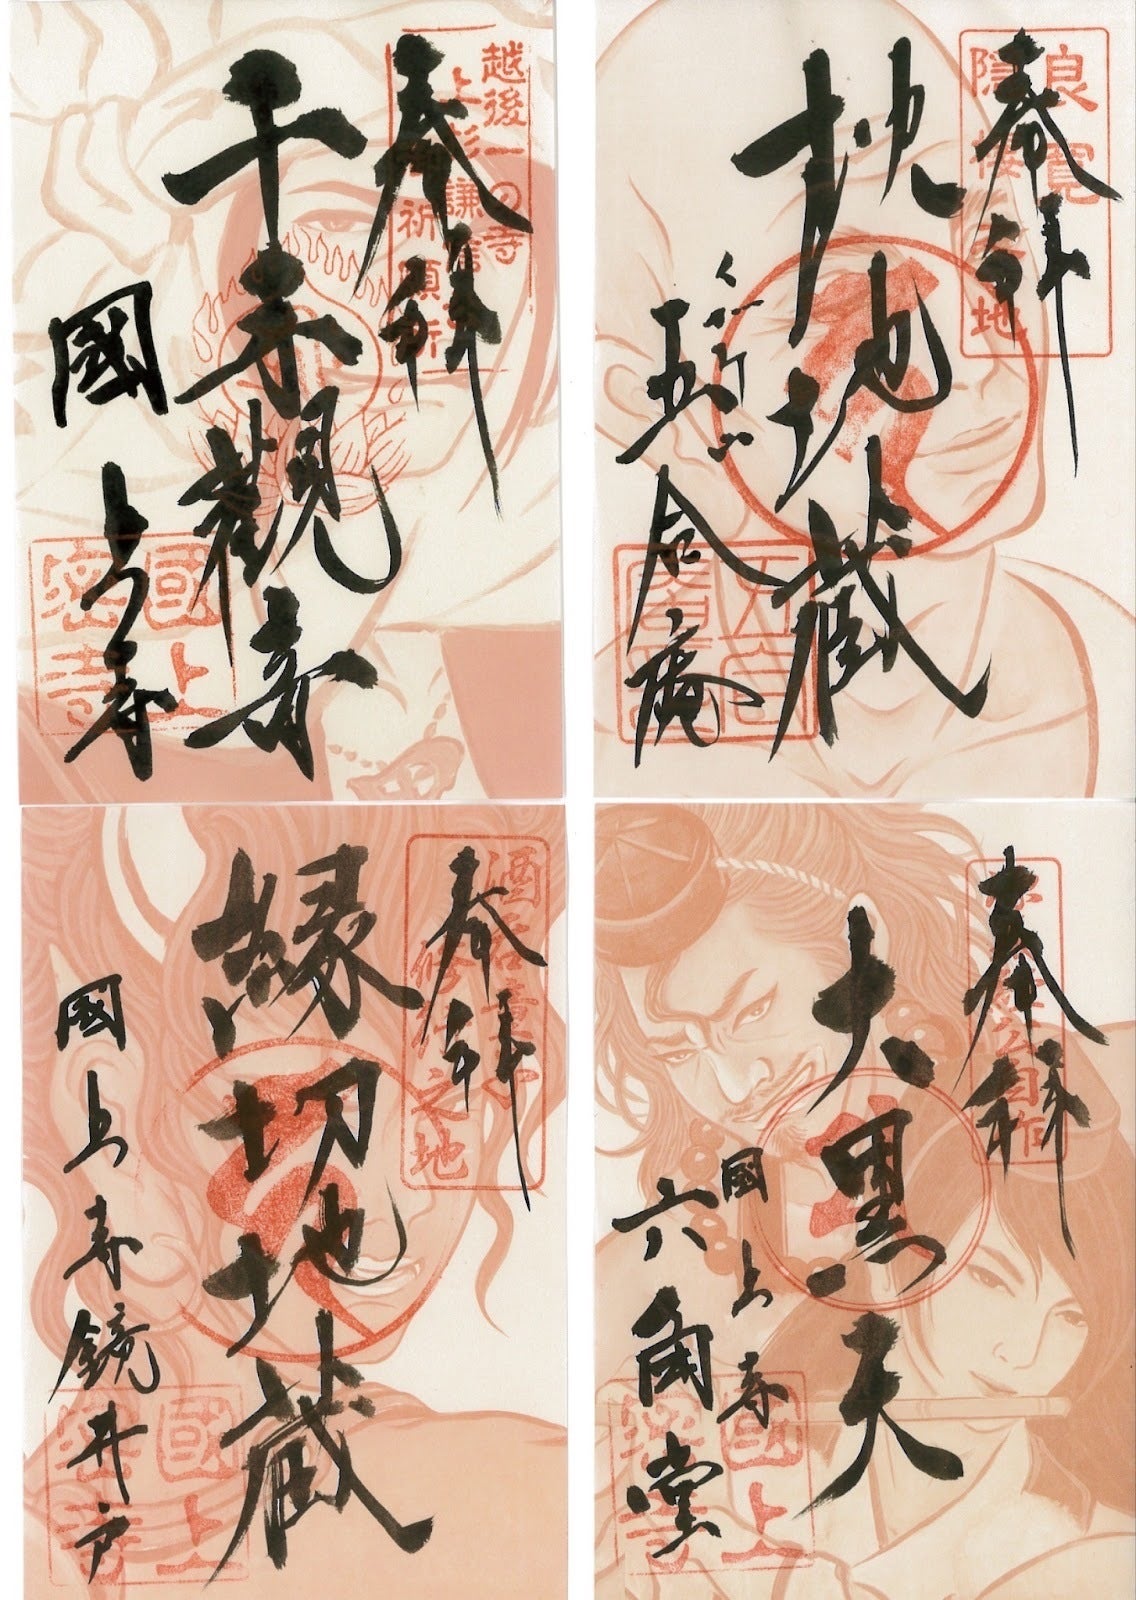 奉拝
越後一の寺
上杉謙信祈願所
千手観音
國上寺
國上
密寺
奉拝
良寛
隠棲之地
枕地蔵
くがみ
五合庵
奉拝
酒呑童子
修行之地
縁切地蔵
國上寺鏡井戸
國上
密寺
奉拝
大黒天
國上寺
六角堂
國上
密寺